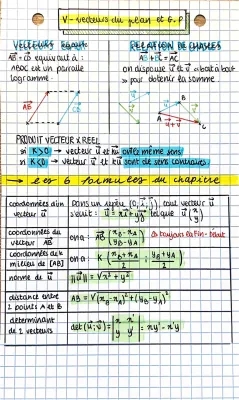 V - vecteurs du plan et G.P
VECTEURS Égaux
AB = CD équivaut à :
ABDC est un parallé
logramme.
AB
CD
RELATION DE CHASLES
AB + BC = AC
on dispose u et v bout à bout
» pour obtenir la somme
B
A
C
u + v
PRODUIT VECTEUR X REEL
si K>0 → vecteur u et ku ont le même sens
si K<0 → vecteur u et ku sont de sens contraires.
→ les 6 formules du chapitre
coordonnées d'un
vecteur u
Dans un repère (O, i, j), tout vecteur u
s'écrit : u = xi + yj tel que u (x y)
coordonnées du
vecteur AB
on a : AB (xB - xA yB - yA)
toujours la Fin - début
coordonnées de K
milieu de [AB]
on a : K ( xB + xA / 2 ; yB + yA / 2 )
norme de u
||u|| = √x² + y²
distance entre
2 points A et B
AB = √(xB - xA)² + (yB - yA)²
determinant
de 2 vecteurs
det (u ; v) = |x x' y y'| = xy' - x'y